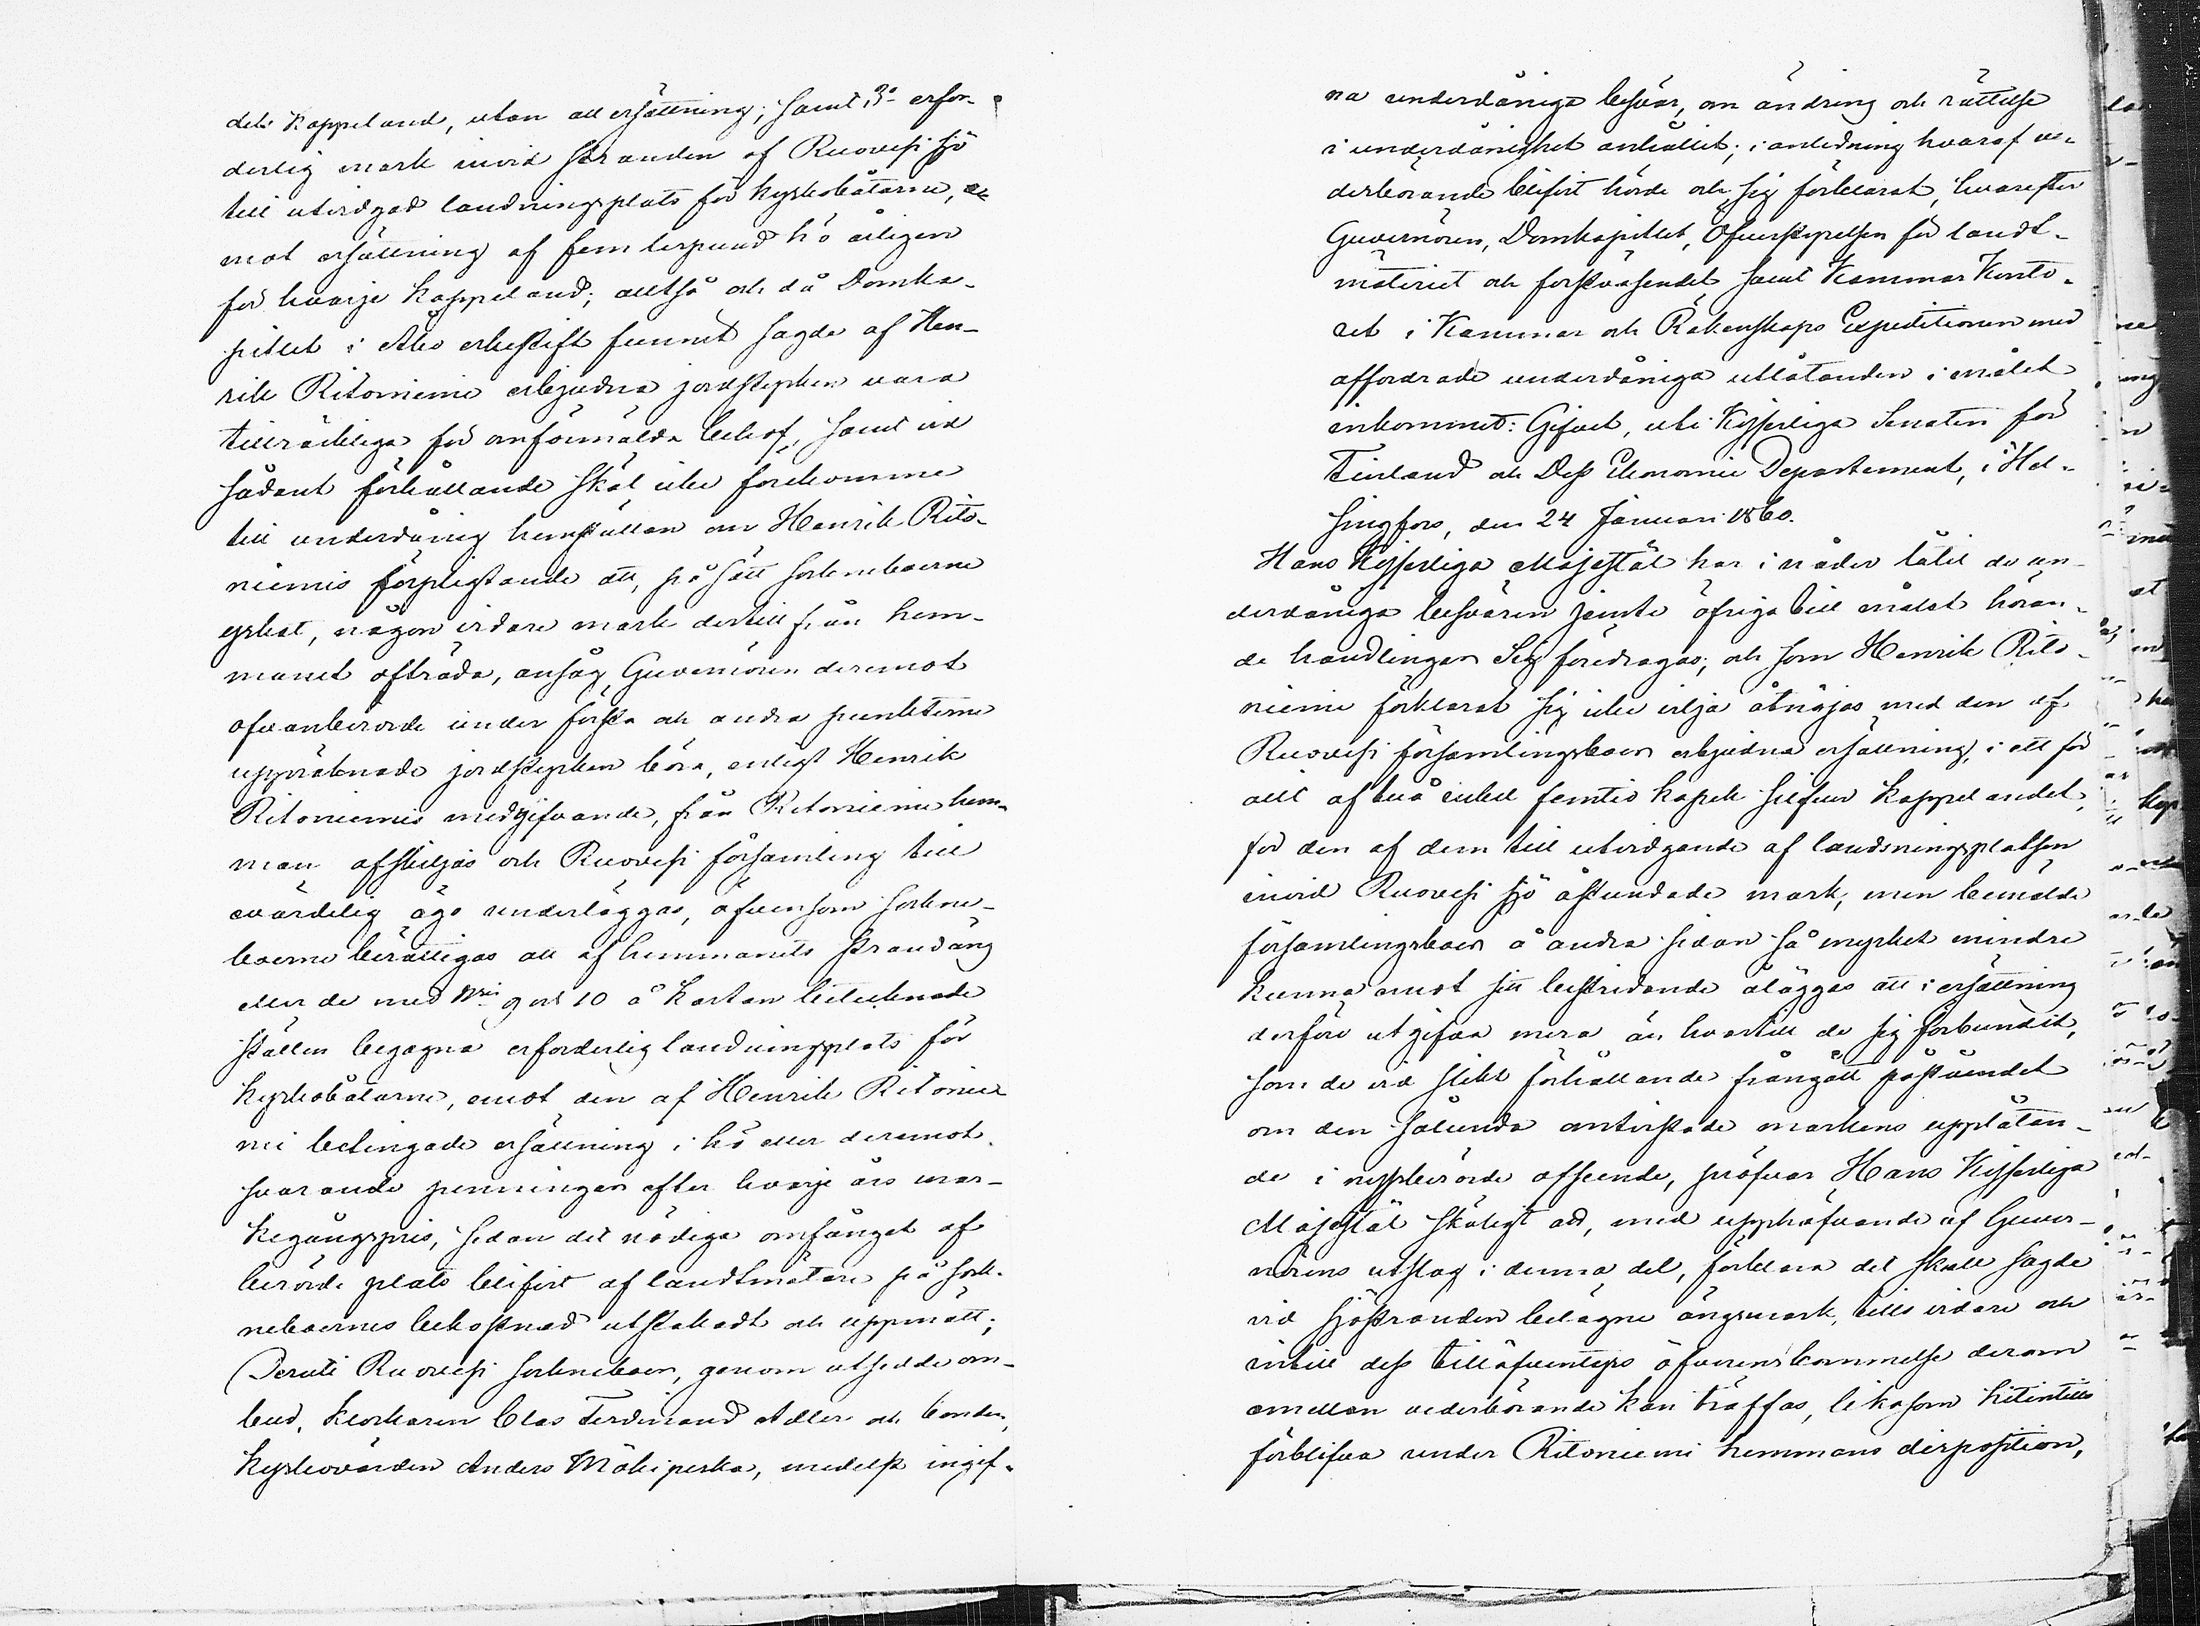 dels Kappeland, utan all ersättning; samt 3:o erfor-
derlig mark invid stranden af Ruovesi sjö
till utvidgad landningsplats för kyrkobåtarne, e-
mot ersättning af fem lispund hö årligen
för hvarje kappeland; alltså och då Domka-
pitlet i Åbo erkeftift funnit sagde af Hen-
rik Ritoniemi erbjudna jordstycken vara
tillräckliga för omförmälda behof, samt vid
sådant förhållande skäl icke förekomme
till underdånig hemställan om Henrik Rito-
niemis förpligtande att, på sätt socknebоerne
yrkat, någon vidare mark dertill från hem-
manet afträda, ansåg Guvernören deremot
ofvanberörde under första och andra punkterne
uppräknade jordstycken böra, enligt Henrik
Ritoniemis medgifvande, från Ritoniemi hem-
man afskiljas och Ruovesi församling till
evärdelig ägo underläggas, äfvensom sockne-
boerne berättigas att af hemmanets strandäng
eller de med N:ris 9 och 10 å kartan betecknade
ställen begagna erforderlig landningsplats för
kyrkobåtarne, emot den af Henrik Ritonie-
mi betingade ersättning i hö eller deremot
svarande penningar efter hvarje års mar-
kegångspris, sedan det nödiga omfånget af
berörde plats blifvit af landtmätare på sock-
neboernes bekostnad utstakadt och uppmätt;
Deruti Ruovesi sockneboer, genom utsedde om-
bud, klockaren Clas Ferdinand Adler och bonden,
kyrkovärden Anders Mäkipeska, medelst ingif-
na underdåniga besvär, om ändring och rättelse
i underdånighet anhållit; i anledning hvaraf ve-
derbörande blifvit hörde och sig förklarat, hvarefter
Guvernören, Domkapitlet, Öfverstyrelsen för landt-
mäteriet och forstväsendet samt Kammar Konto-
ret i Kammar och Räkenskaps Expeditionen med
affordrade underdåniga utlåtanden i målet
inkommit: Gifvet, uti Kejserliga Senaten för
Finland och Dess Ekonomie Departement, i Hel-
singfors, den 24 Januari 1860.
Hans Kejserliga Majestät har i nåder låtit de un-
derdåniga besvären jemte öfriga till målet höran-
de handlingar Sig föredragas; och som Henrik Rito-
niemi förklarat sig icke vilja åtnöjas med den af
Ruovesi församlingsboer erbjudna ersättning, i ett för
allt af två rubel femtio kopek silfver kappelandet,
för den af dem till utvidgande af landningsplatsen
invid Ruovesi sjö åstundade mark, men bemälde
församlingsboer å andra sidan så mycket mindre
kunna emot sitt bestridande åläggas att i ersättning
derföre utgifva mera än hvartill de sig förbundit,
som de vid slikt förhållande frångått påståendet
om den sålunda omtvistade markens upplåtan-
de i nyssberörde afseende, pröfvar Hans Kejserliga
Majestät skäligt att, med upphäfvande af Guver-
nörens utslag i denna del, förklara det skall sagde
vid sjöstranden belägne ängsmark, tills vidare och
intill dess tilläfventyrs öfverenskommelse derom
emellan vederbörande kan träffas, likasom hitintills
förblifva under Ritoniemi hemmans disposition,